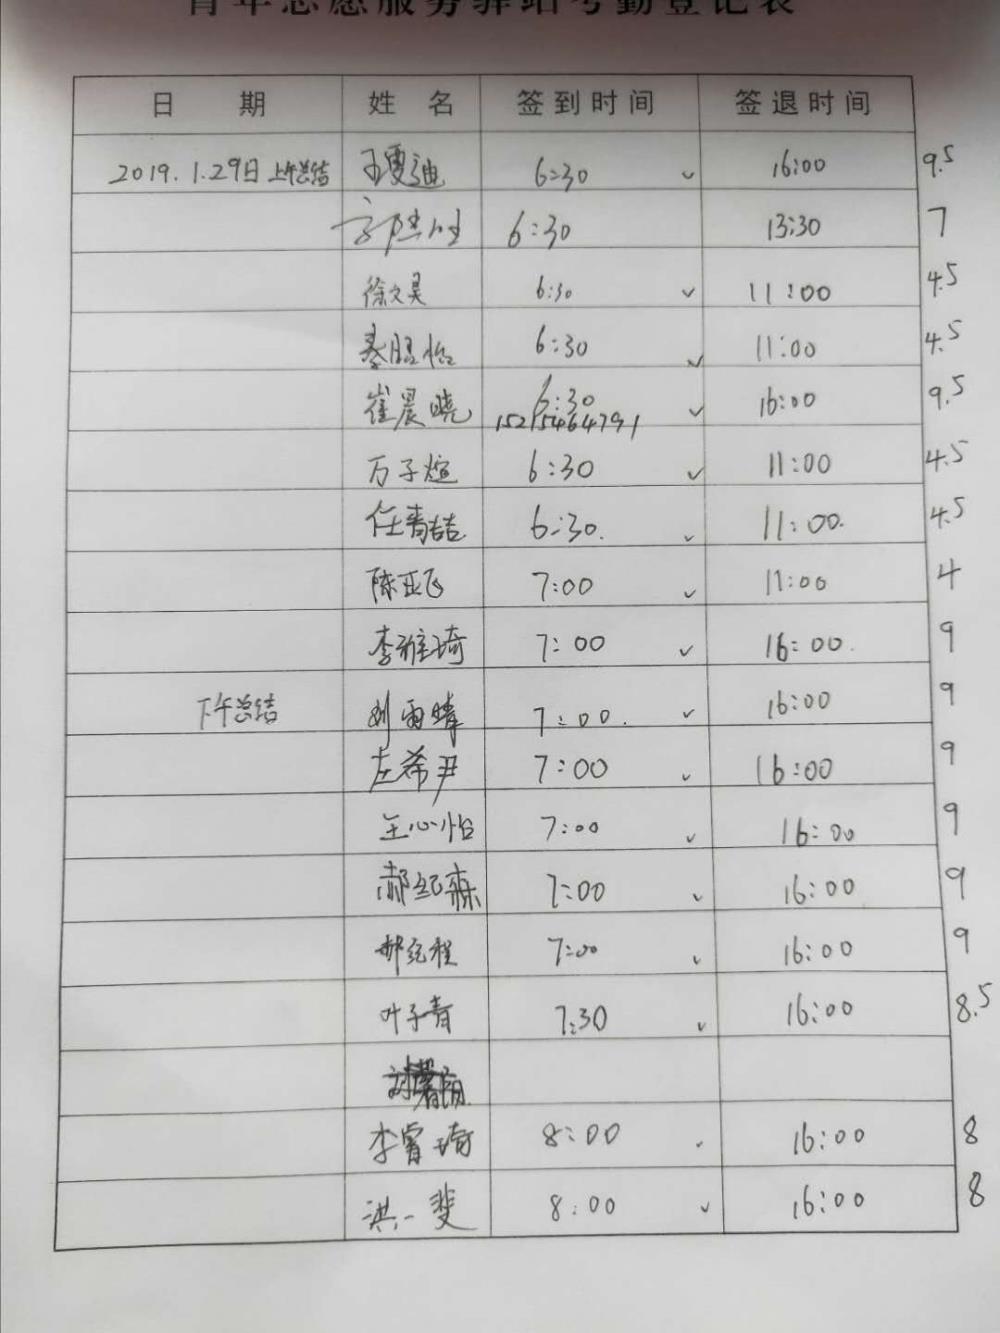 青年志愿服务驿站考勤登记表
日 期 姓 名 签到时间 签退时间
2019.1.29日 上午总结 王雯迪 6:30 ✓ 16:00 9.5
6:30 13:30 7
徐文昊 6:30 ✓ 11:00 4.5
秦熙怡 6:30 ✓ 11:00 4.5
崔晨晓 6:30 ✓ 16:00 9.5
15215464791
万子煊 6:30 ✓ 11:00 4.5
任青喆 6:30. ✓ 11:00. 4.5
陈亚飞 7:00 ✓ 11:00 4
李雅琦 7:00 ✓ 16:00. 9
下午总结 刘雨晴 7:00. ✓ 16:00 9
左希尹 7:00 ✓ 16:00 9
王心怡 7:00 ✓ 16:00 9
郝纪森 7:00 ✓ 16:00 9
郝纪程 7:00 ✓ 16:00 9
叶子青 7:30 ✓ 16:00 8.5
李睿琦 8:00 16:00 8
洪一斐 8:00 ✓ 16:00 8